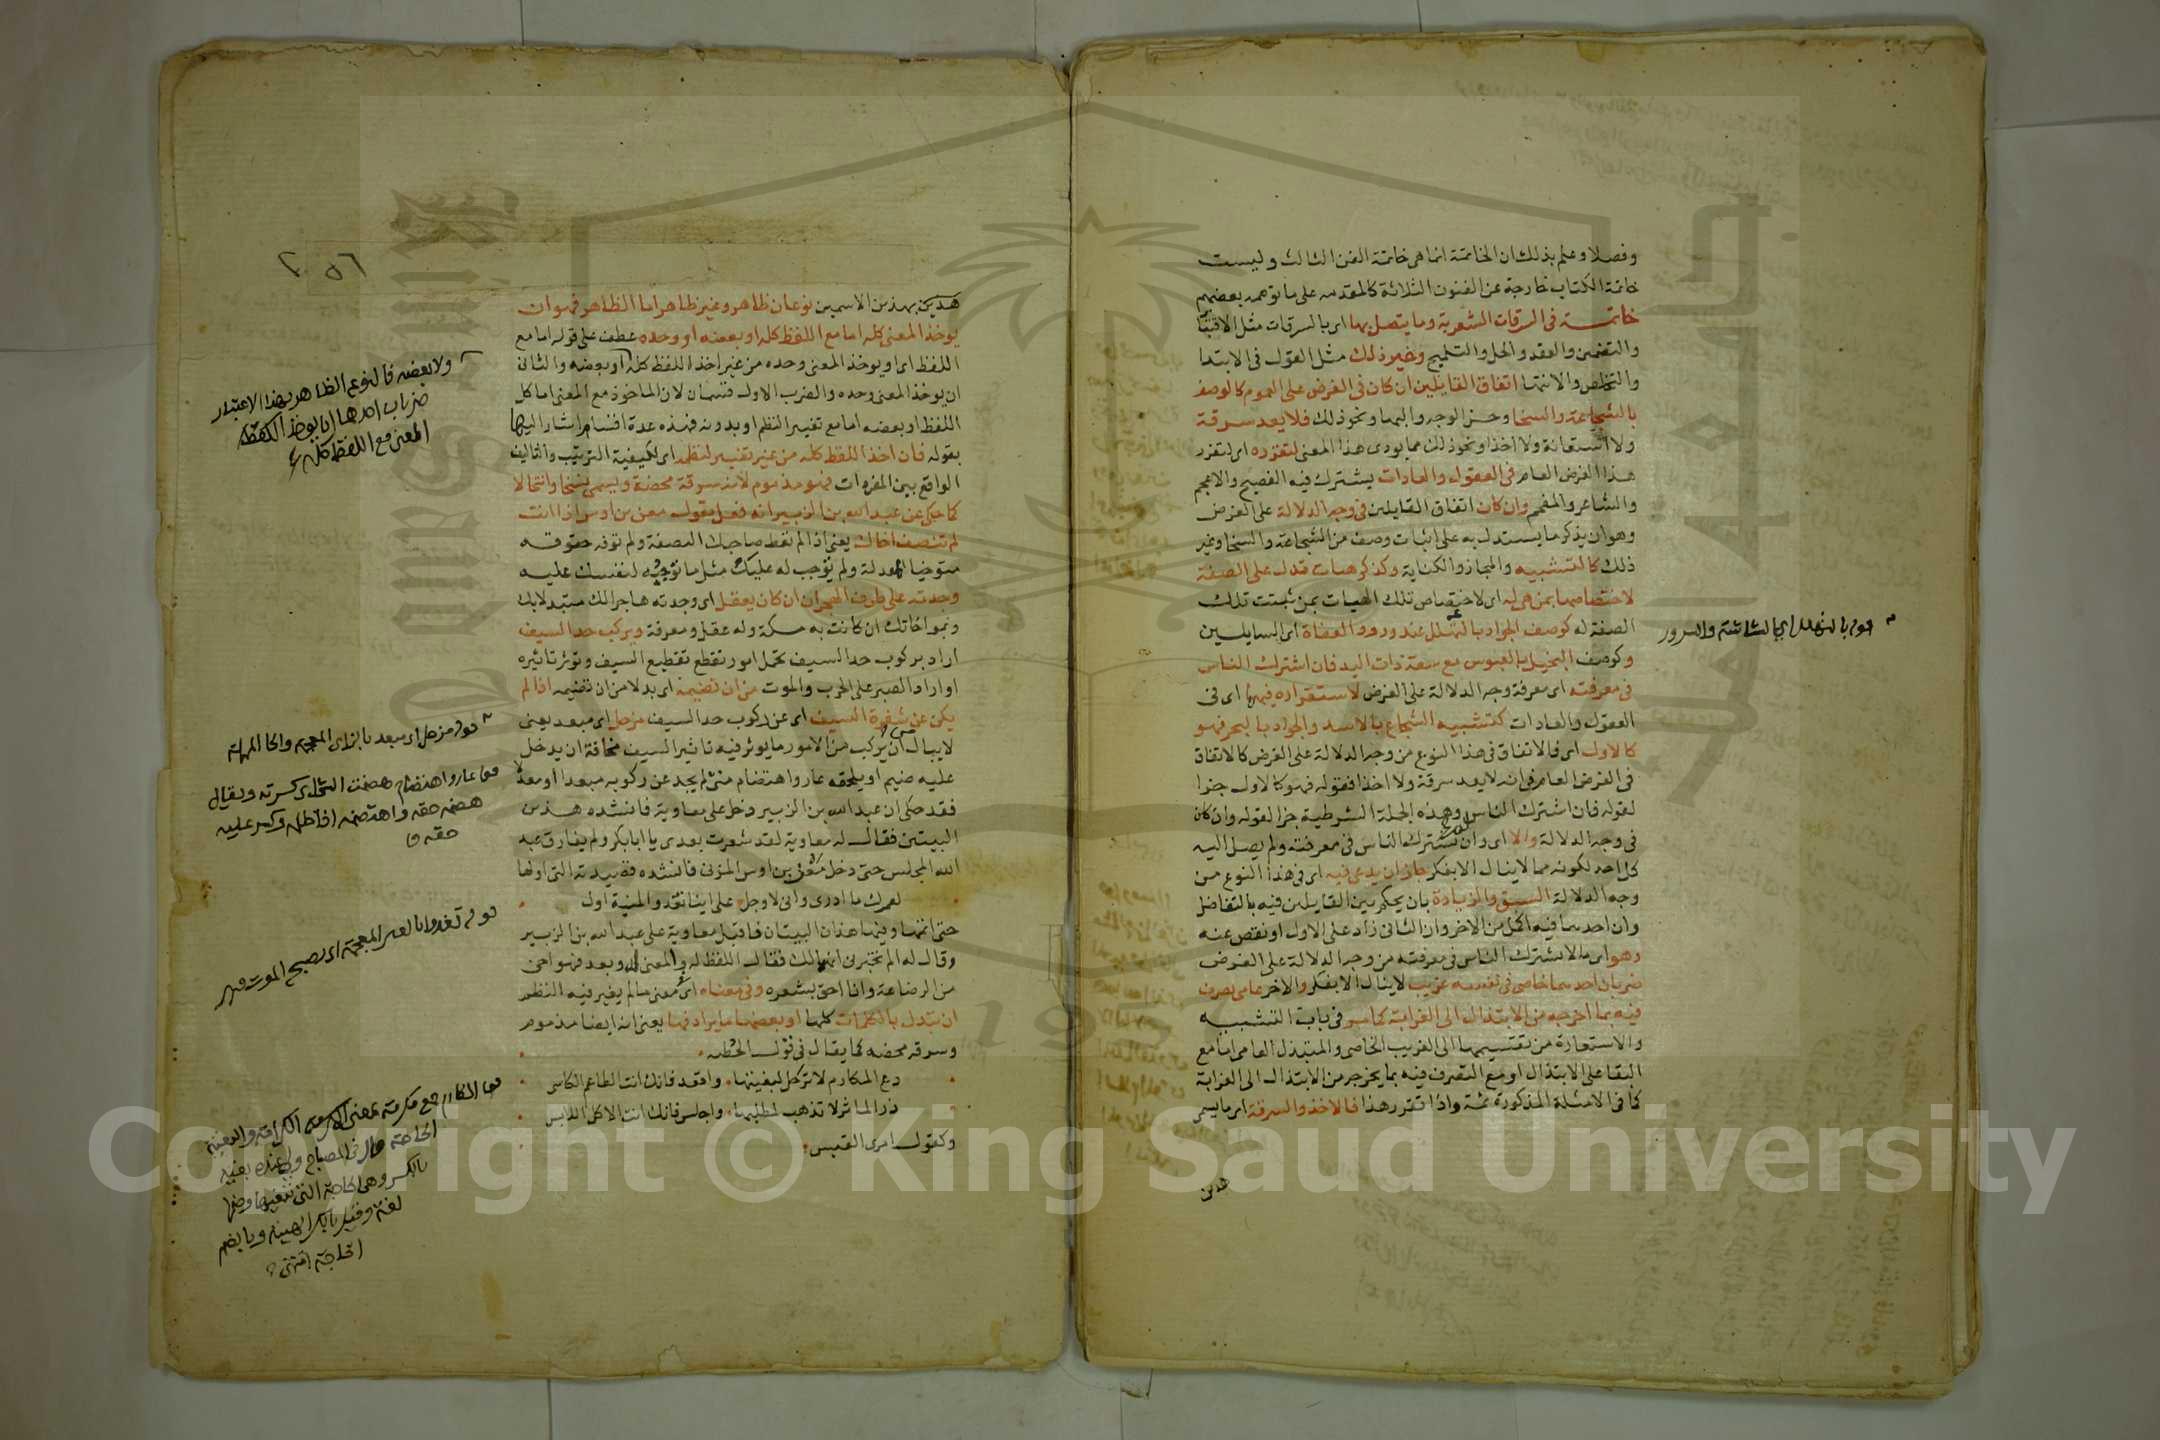 وفصلا وعلم بذلك ان الخاتمة انما هى خاتمة الفن الثالث وليست
خاتمة الكتاب خارجة عن الفنون الثلاثة كالمقدمه على ما توهمه بعضهم
خاتمة فى السرقات الشعرية وما يتصل بها اى بالسرقات مثل الاقتباس
والتضمين والعقد والحل والتلميح وغير ذلك مثل القول فى الابتدا
والتخلص والانتها اتفاق القايلين ان كان فى الغرض على العموم كالوصف
بالشجاعة والسخا وحسن الوجه والبها ونحو ذلك فلا يعد سرقة
ولا استعانة ولا اخذا ونحو ذلك مما يودى هذا المعنى لتقرره اى لتقرر
هذا الغرض العام فى العقول والعادات يشترك فيه الفصيح والاعجم
والشاعر والمفحم وان كان اتفاق القايلين فى وجه الدلالة على الغرض
وهو ان يذكر ما يستدل به على اثبات وصف من الشجاعة والسخا وغير
ذلك كالتشبيه والمجاز والكناية وكذكر هيات تدل على الصفة
لاختصاصها بمن هى له اى لاختصاص تلك الهيات بمن ثبتت تلك
الصفة له كوصف الجواد بالتهلل عند ورود العفاة اى السايلين
وكوصف البخيل بالعبوس مع سعة ذات اليد فان اشترك الناس
فى معرفته اى معرفة وجه الدلالة على الغرض لاستقراره فيهما اى فى
العقول والعادات كتشبيه الشجاع بالاسد والجواد بالبحر فهو
كالاول اى فالاتفاق فى هذا النوع من وجه الدلالة على الغرض كالاتفاق
فى الغرض العام فى انه لا يعد سرقة ولا اخذا فقوله فهو كالاول جزا
لقوله فان اشترك الناس وهذه الجملة الشرطية جزا لقوله وان كان
فى وجه الدلالة والا اى وان لم يشترك الناس فى معرفته ولم يصل اليه
كل احد لكونه مما لا ينال الا بفكر جاز ان يدعى فيه اى فى هذا النوع من
وجه الدلالة السبق والزيادة بان يحكم بين القايلين فيه بالتفاضل
وان احدهما فيه اكمل من الاخر وان الثانى زاد على الاول او نقص عنه
وهو اى ما لا يشترك الناس فى معرفته من وجه الدلالة على الغرض
ضربان احدهما خاصى فى نفسه غريب لا ينال الا بفكر والاخر عامى تصرف
فيه بما اخرجه من الابتذال الى الغرابة كما مر فى باب التشبيه
والاستعارة من تقسيمهما الى الغريب الخاصى والمبتذل العامى اما مع
البقا على الابتذال او مع التصرف فيه بما يخرجه من الابتذال الى الغرابة
كما فى الامثلة المذكورة ثمة واذا تقرر هذا فالاخذ والسرقة اى ما يسمى
هذين
قوله بالتهلل اى بالبشاشة والسرور
هذين بهذين الاسمين نوعان ظاهر وغير ظاهر اما الظاهر فهو ان
يوخذ المعنى كله اما مع اللفظ كله او بعضه او وحده عطف على قوله اما مع
اللفظ اى او يوخذ المعنى وحده من غير اخذ اللفظ كله او بعضه والثانى
ان يوخذ المعنى وحده والضرب الاول قسمان لان الماخوذ مع المعنى اما كل
اللفظ او بعضه اما مع تغيير النظم او بدونه فهذه عدة اقسام اشار اليها
بقوله فان اخذ اللفظ كله من غير تغيير لنظمه اى لكيفية الترتيب والتاليف
الواقع بين المفردات فهو مذموم لانه سرقة محضة ويسمى نسخا وانتحالا
كما حكى عن عبد الله بن الزبير انه فعل بقول معن بن اوس اذا انت
لم تنصف اخاك يعنى اذا لم تعط صاحبك النصفة ولم توفه حقوقه
متوخيا المعدلة ولم توجب له عليك مثل ما توجبه لنفسك عليه
وجدته على طرف الهجران ان كان يعقل اى وجدته هاجرا لك مستبدلا بك
وبمواخاتك ان كانت به مسكة وله عقل ومعرفة ويركب حد السيف
اراد بركوب حد السيف تحمل امور تقطع تقطيع السيف وتوثر تاثيره
او اراد الصبر على الحرب والموت من ان تضيمه اى بدلا من ان تضيمه اذا لم
يكن عن شفرة السيف اى عن ركوب حد السيف مزحل اى مبعد يعنى
لا يبالى ان يركب من الامور ما يوثر فيه تاثير السيف مخافة ان يدخل
عليه ضيم او يلحقه عار واهتضام متى لم يجد عن ركوبه مبعدا او معدلا
فقد حكى ان عبد الله بن الزبير دخل على معاوية فانشده هذين
البيتين فقال له معاوية لقد شعرت بعدى يا ابا بكر ولم يفارق عبد
الله المجلس حتى دخل معن بن اوس المزنى فانشده قصيدته التى اولها
لعمرك ما ادرى وانى لاوجل على اينا تغدو المنية اول
حتى اتمها وفيها هذان البيتان فاقبل معاوية على عبد الله بن الزبير
وقال له الم تخبرنى انهما لك فقال اللفظ له والمعنى لى وبعد فهو اخى
من الرضاعة وانا احق بشعره وفى معناه اى فى معنى ما لم يغير فيه النظم
ان تبدل بالكلمات كلها او بعضها ما يرادفها يعنى انه ايضا مذموم
وسرقه محضه كما يقال فى قول الحطيه
دع المكارم لا ترحل لبغيتها واقعد فانك انت الطاعم الكاسى
ذر الماثر لا تذهب لمطلبها واجلس فانك انت الاكل اللابس
وكقول امرى القيس
٢٥٦
ولا بعضه فالنوع الظاهر بهذا الاعتبار
ضربان احدهما ان يوخذ
المعنى مع اللفظ كله
قوله مزحل اى مبعد بالزاى المعجمه والحا المهملة
عار واهتضام هضمت الشى كسرته ويقال
هضمه حقه واهتضمه اذا ظلمه وكسر عليه
حقه
قوله تغدو بالغين المعجمة اى يصبح الموت
المكارم جمع مكرمة بمعنى الكرامة والبغية
الحاجة قال فى المصباح ولى عنده بغية
بالكسر وهى الحاجة التى تبغيها وضمها
لغة وقيل بالكسر الهيئة وبالضم
الحاجة انتهى
Copyright © King Saud University